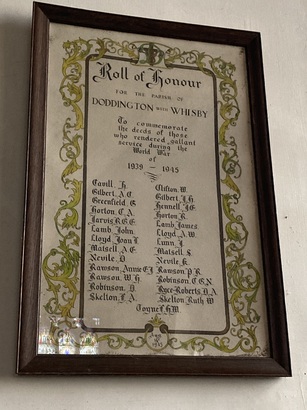 Roll of Honour
FOR THE PARISH OF
DODDINGTON WITH WHISBY
To commemorate
the deeds of those
who rendered gallant
service during the
World War
of
1939 — 1945
Cavill. H. Clifton. W.
Gilbert. A.C. Gilbert. J.H.
Greenfield. G. Hennell. J.G.
Horton. C.A. Horton. R.
Jarvis. R.G.E. Lamb. James
Lamb. John Lloyd. A.W.
Lloyd. Joan I. Lunn. J.
Matsell. A.E. Matsell. S.
Nevile. D. Nevile. R.
Rawson. Annie E.J. Rawson. P.R.
Rawson. W.H. Robinson. C.G.N.
Robinson. D. Roce-Roberts. D.A.
Skelton. L.A. Skelton. Ruth W.
Toyne. F.H.W.